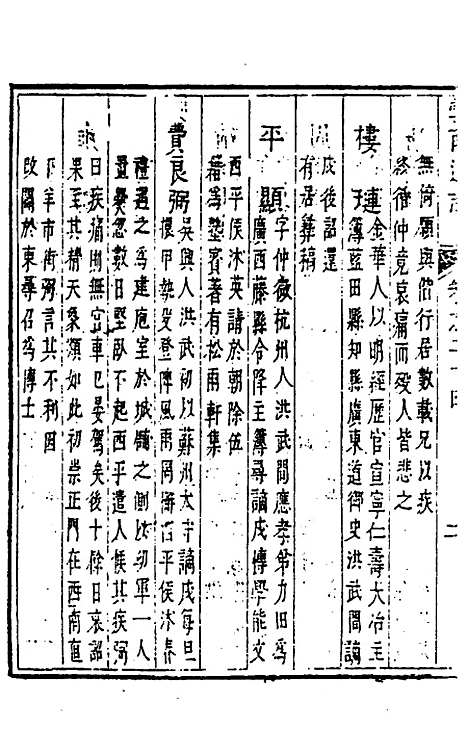 無倚願與偕行居數載兄以疾
終循仲竟哀痛而殁人皆悲之
樓璉金華人以明經歷官宣寧仁壽大冶主
簿藍田縣知縣廣東道御史洪武間謫
戍後認還
有居夷稿
平顯字仲微杭州人洪武間應孝弟力田為
廣西藤縣令降主簿尋謫戍博學能文
西平侯沐英請於朝除伍
籍為塾賓著有松雨軒集
費良弼吳興人洪武初以蘇州太守謫戍每旦
擐甲執殳登陴風雨罔懈西平侯沐春
禮遇之為建庖室於城之側以幼軍一人
忽數日堅臥不起西平遣人候其疾弼
曰疾痛則無宮車已晏駕矣後十餘日哀詔
果至其精天象類如此初崇正門在西南
羊市街弼言其不利因
改闢於東尋召為博士